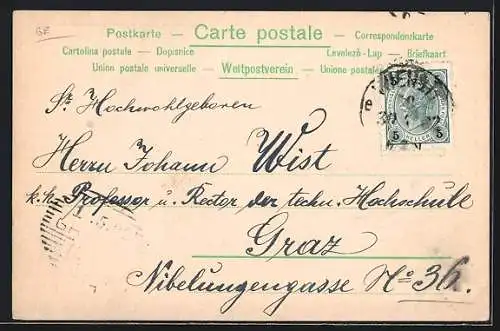 GF
Postkarte — Carte postale — Correspondenzkarte
Cartolina postale — Dopisnice Levelező-Lap — Briefkaart
Union postale universelle — Weltpostverein — Unione postale
5 HELLER 5
Sr. Hochwohlgeboren
Herrn Johann Wist
k. k. Professor u. Rector der techn. Hochschule
Graz
Nibelungengasse No. 36.